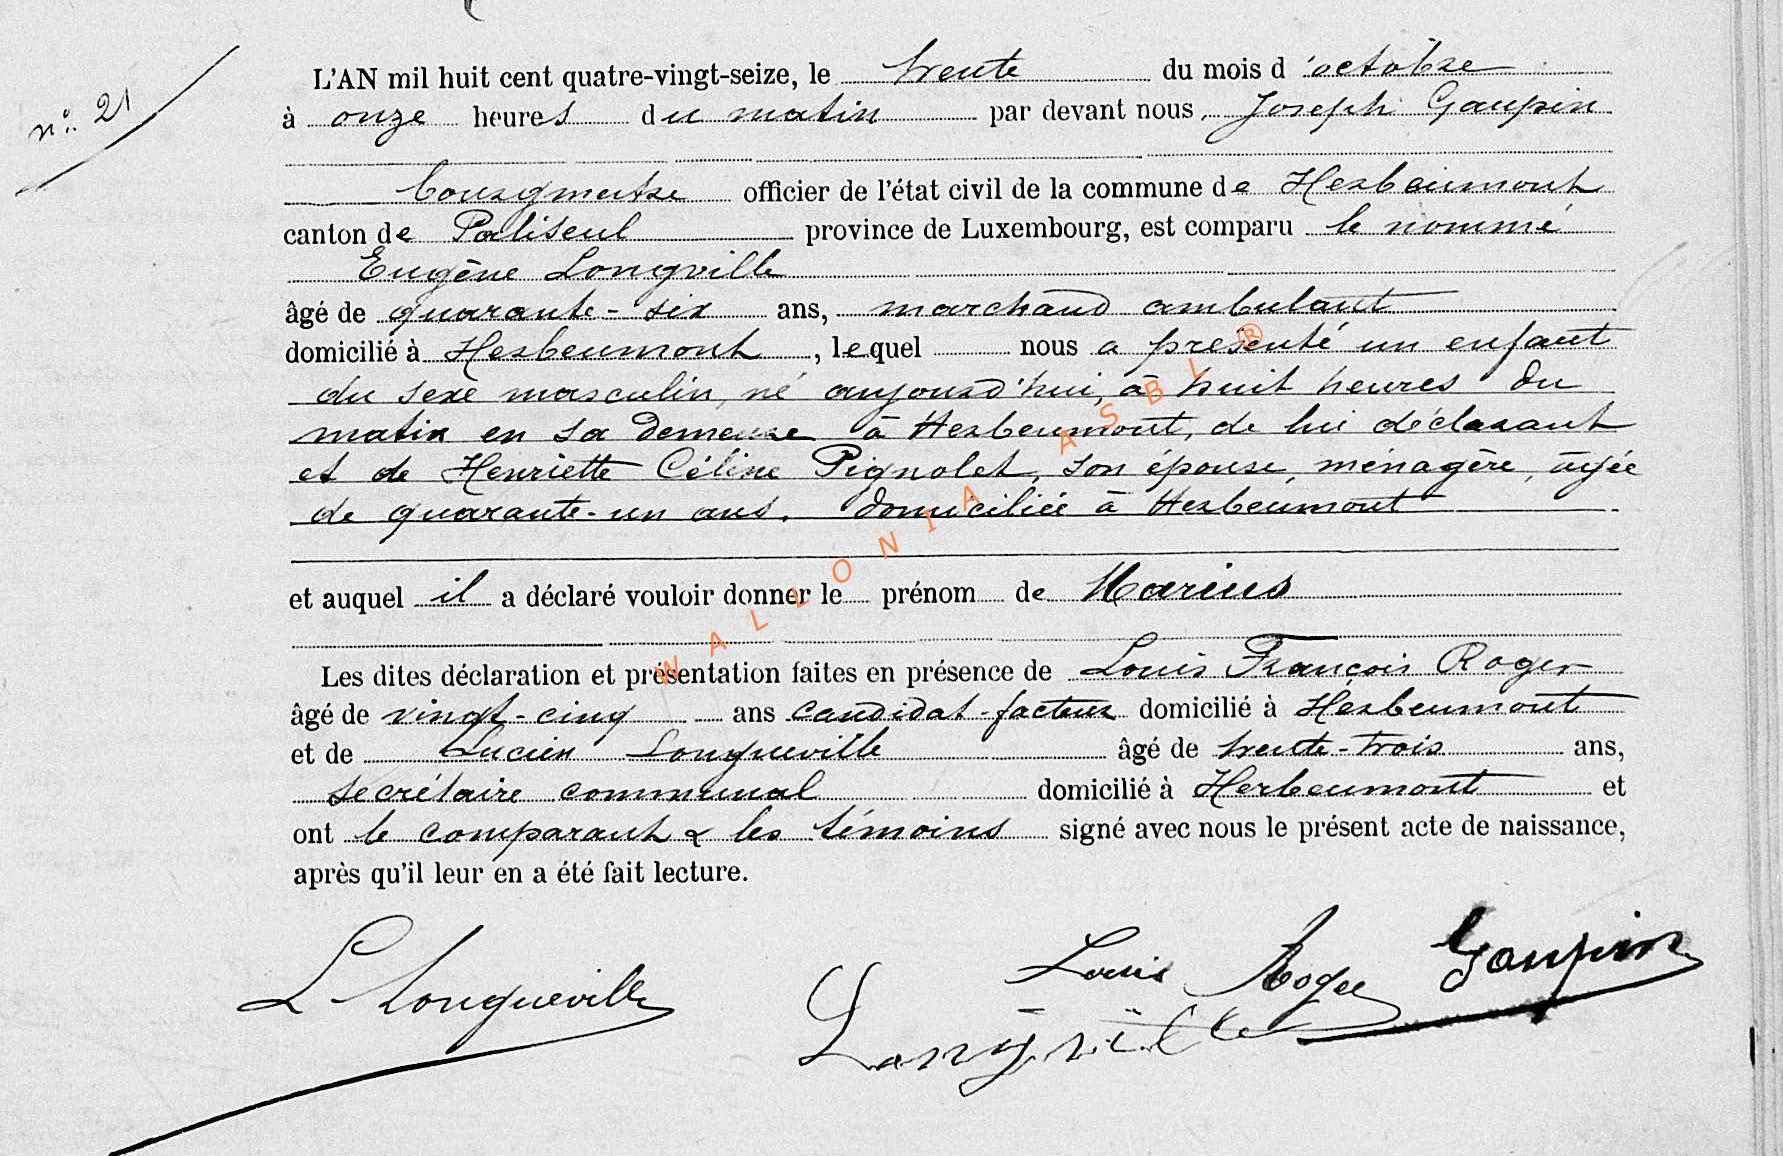 n°. 21
L'AN mil huit cent quatre-vingt-seize, le trente du mois d'octobre
à onze heures du matin par devant nous, Joseph Gaupin
bourgmestre officier de l'état civil de la commune de Herbeumont
canton de Paliseul province de Luxembourg, est comparu le nommé
Eugène Longville
âgé de quarante-six ans, marchand ambulant
domicilié à Herbeumont, lequel nous a présenté un enfant
du sexe masculin, né aujourd'hui, à huit heures du
matin en sa demeure à Herbeumont, de lui déclarant
et de Henriette Céline Pignolet, son épouse, ménagère, âgée
de quarante-un ans, domiciliée à Herbeumont
et auquel il a déclaré vouloir donner le prénom de Marius
Les dites déclaration et présentation faites en présence de Louis François Roger
âgé de vingt-cinq ans candidat-facteur domicilié à Herbeumont
et de Lucien Longueville âgé de trente-trois ans,
secrétaire communal domicilié à Herbeumont et
ont le comparant & les témoins signé avec nous le présent acte de naissance,
après qu'il leur en a été fait lecture.
L Longueville Louis Roger Gaupin
Longville
WALLONIA ASBL ®